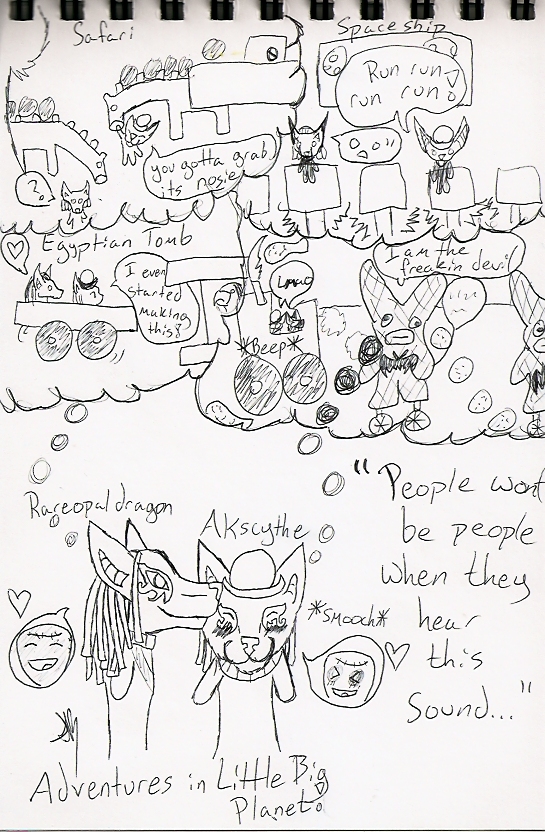 Safari
Space ship
Run run
run run!
you gotta grab
its nosie
?
Egyptian Tomb
I even
started
making
this!
LMAO
*Beep*
I am the
freakin devil
Rareopaldragon
AKscythe
*SMOOCH*
"People wont
be people
when they
hear
this
Sound..."
Adventures in Little Big
Planet!